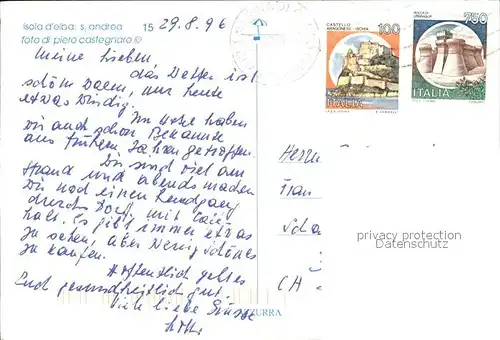 isola d'elba: s. andrea
foto di piero castegnaro ©
15
29.8.96
Meine Lieben,
das Wetter ist
schön warm, nur heute
etwas windig. Im Hotel haben
Wir auch schon Bekannte
aus früheren Jahren getroffen.
Wir sind viel am
Strand und abends machen
Wir noch einen Rundgang
durchs Dorf, mit
halt. Es gibt immer etwas
zu sehen, aber wenig schönes
zu kaufen.
Hoffentlich geht es
Euch gesundheitlich gut
Viele liebe Grüsse
CASTELLO
ARAGONESE - ISCHIA
100
ITALIA
750
ITALIA
Herrn
Frau
Scha
CH
privacy protection
Datenschutz
ZURRA